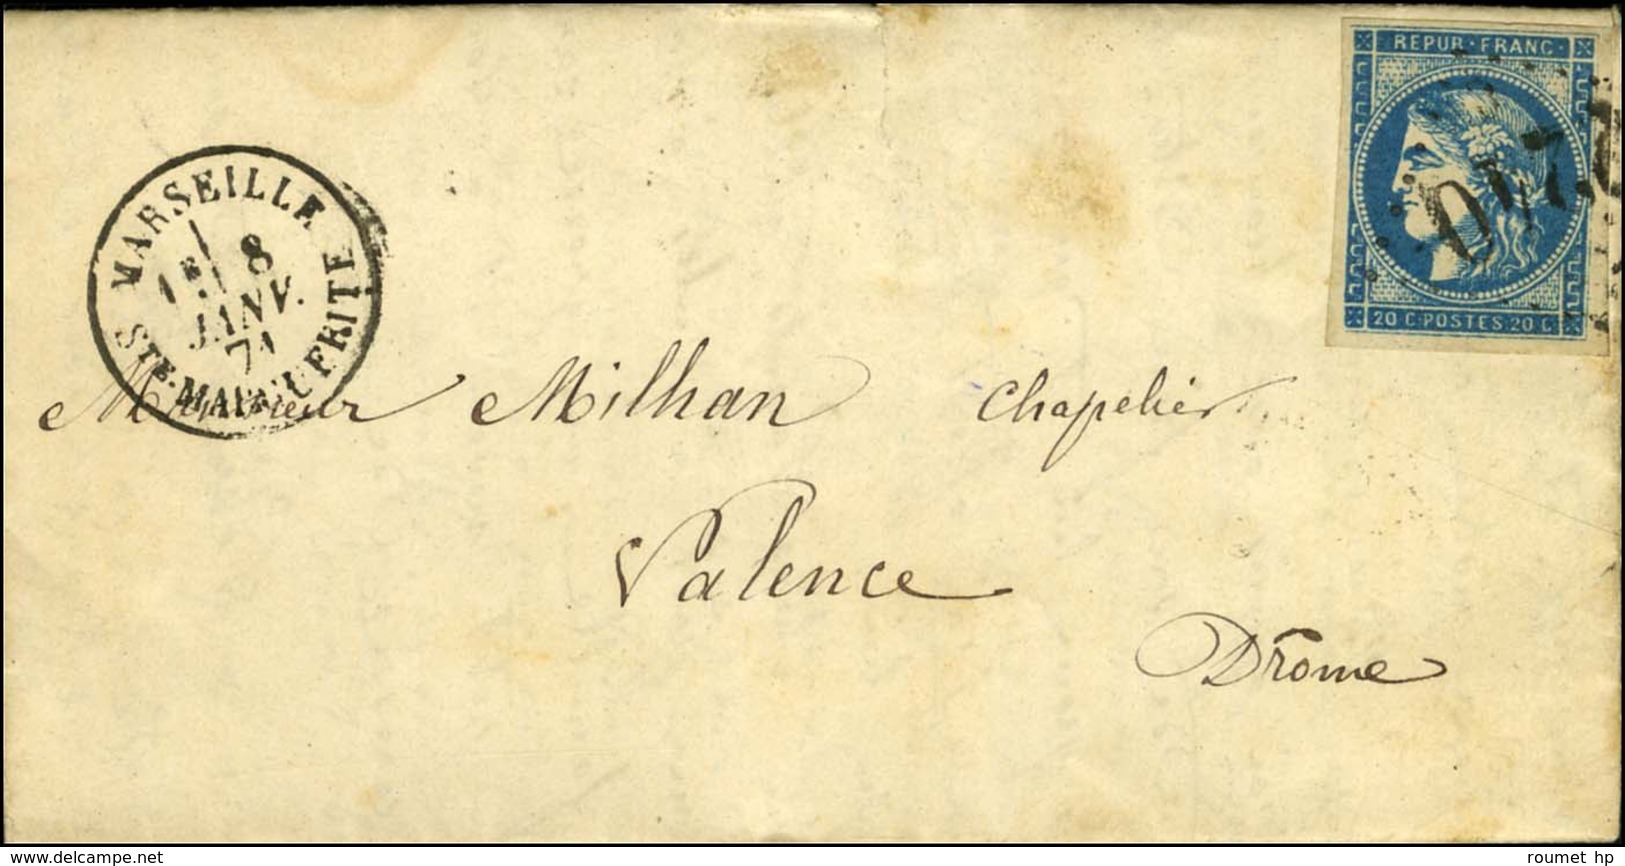 REPUB · FRANC ·
2240
20 C · POSTES · 20 C
MARSEILLE
1E 8
JANV.
71
STE-MARGUERITE
Monsieur Milhan Chapelier
Valence
Drôme
www.delcampe.net
roumet hp